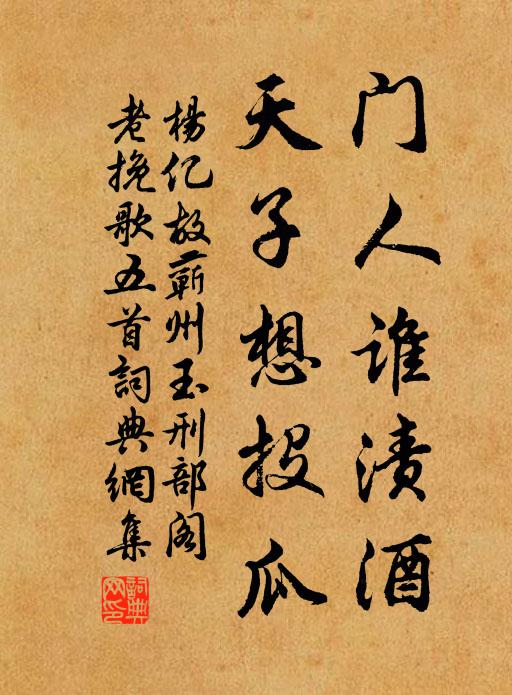 门人谁渍酒
天子想投瓜
楊亿故蕲州玉刑部阁
老挽歌五首詞典網集
詞典网印